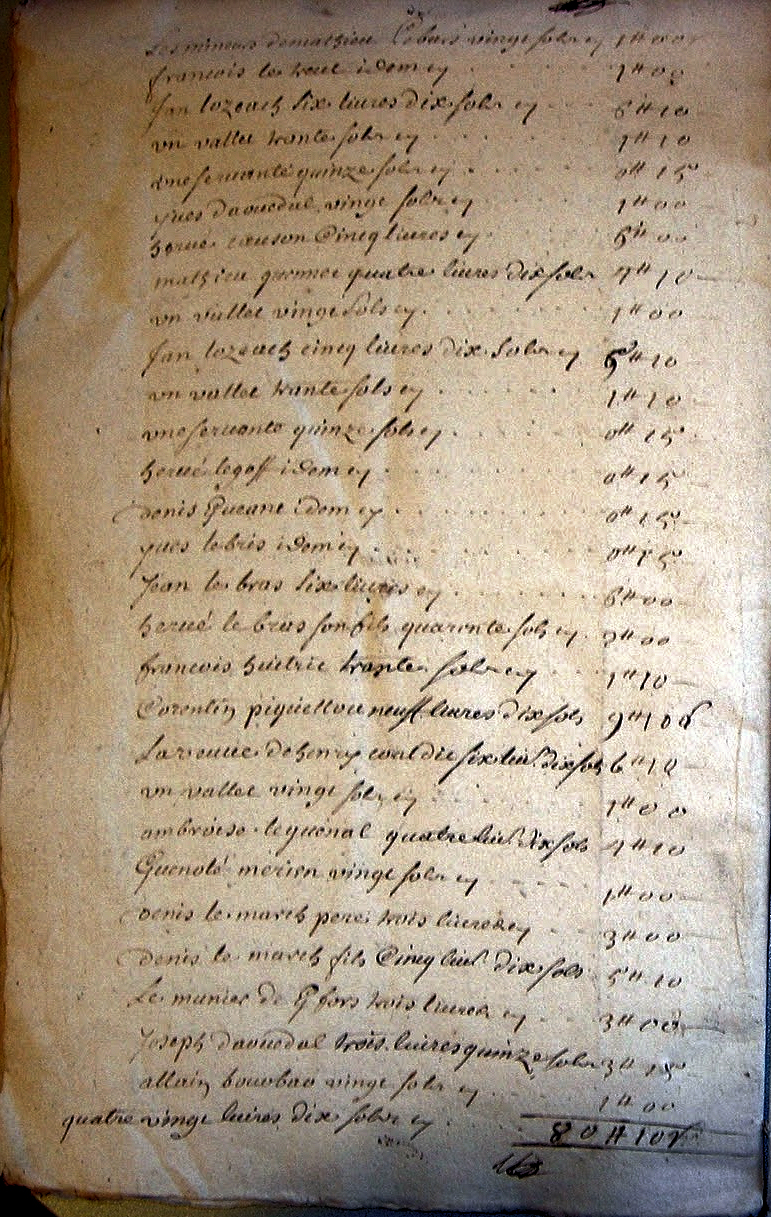 Les mineurs de mathieu vingt sols cy 1 ″ 00
francois le idem cy 1 ″ 00
Jan lozeach six livres dix sols cy 6 ″ 10
un vallet trante sols cy 1 ″ 10
une servante quinze sols cy 0 ″ 15
yves daouedal vingt sols cy 1 ″ 00
hervé cinq livres cy ″ 00
mathieu quatre livres dix sols 4 ″ 10
un vallet vingt sols cy 1 ″ 00
Jan lozeach cinq livres dix sols cy 5 ″ 10
un vallet trante sols cy 1 ″ 10
une servante quinze sols cy 0 ″ 15
hervé le goff idem cy 0 ″ 15
denis idem cy 0 ″ 15
yves le bris idem cy 0 ″ 15
Jean le bras six livres cy 6 ″ 00
hervé le bras son fils quarente sols cy 2 ″ 00
francois trante sols cy 1 ″ 10
Corentin neuff livres dix sols 9 ″ 10 s
La veuve de henry six liv. dix sols 6 ″ 10
un vallet vingt sols cy 1 ″ 00
ambroise le guenal quatre liv. dix sols 4 ″ 10
Guenolé merien vingt sols cy 1 ″ 00
denis le march pere trois livres cy 3 ″ 00
denis le march fils Cinq liv. dix sols 5 ″ 10
Le munier de trois livres cy 3 ″ 00
Joseph daouedal trois livres quinze sols 3 ″ 15
allain vingt sols cy 1 ″ 00
quatre vingt livres dix sols cy 80 ″ 10 s